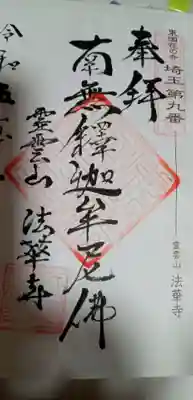 奉拝
東国花の寺
埼玉第九番
霊雲山 法華寺
南無釋迦牟尼佛
霊雲山 法華寺
令和五年